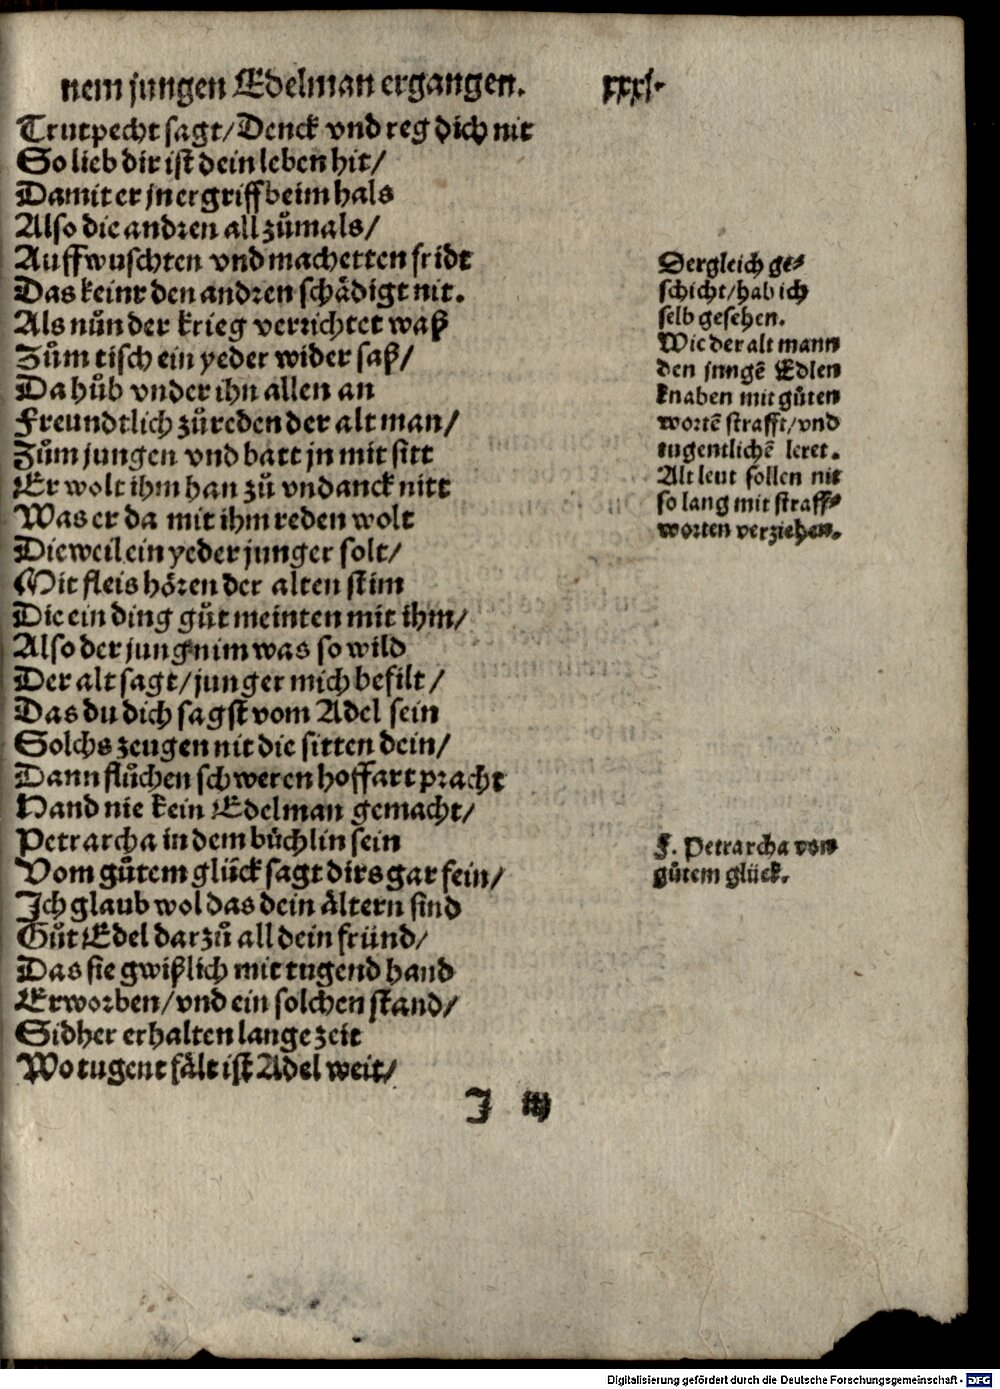 nem jungen Edelman ergangen. xxxj.
Trutpecht sagt/Denck vnd reg dich nit
So lieb dir ist dein leben hit/
Damit er jn ergriff beim hals
Also die andꝛen all zůmals/
Auffwuschten vnd machetten fridt
Das keinr den andꝛen schädigt nit.
Als nůn der krieg verrichtet waß
Zům tisch ein yeder wider saß/
Da hůb vnder ihn allen an
Freundtlich zů reden der alt man/
Zům jungen vnd batt jn mit sitt
Er wolt ihm han zů vndanck nitt
Was er da mit ihm reden wolt
Dieweil ein yeder junger solt/
Mit fleis höꝛen der alten stim
Die ein ding gůt meinten mit ihm/
Also der jung nim was so wild
Der alt sagt/junger mich befilt/
Das du dich sagst vom Adel sein
Solchs zeugen nit die sitten dein/
Dann flůchen schweren hoffart pꝛacht
Hand nie kein Edelman gemacht/
Petrarcha in dem büchlin sein
Vom gůtem glück sagt dirs gar fein/
Ich glaub wol das dein ältern sind
Gůt Edel darzů all dein fründ/
Das sie gwißlich mit tugend hand
Erwoꝛben/vnd ein solchen stand/
Sidher erhalten lange zeit
Wo tugent fält ist Adel weit/
J iij
Dergleich ge⸗
schicht/hab ich
selb gesehen.
Wie der alt mann
den jungē Edlen
knaben mit gůten
woꝛtē strafft/vnd
tugentlichē leret.
Alt leut sollen nit
so lang mit straff⸗
woꝛten verziehen.
F. Petrarcha von
gůtem glück.
Digitalisierung gefördert durch die Deutsche Forschungsgemeinschaft - DFG